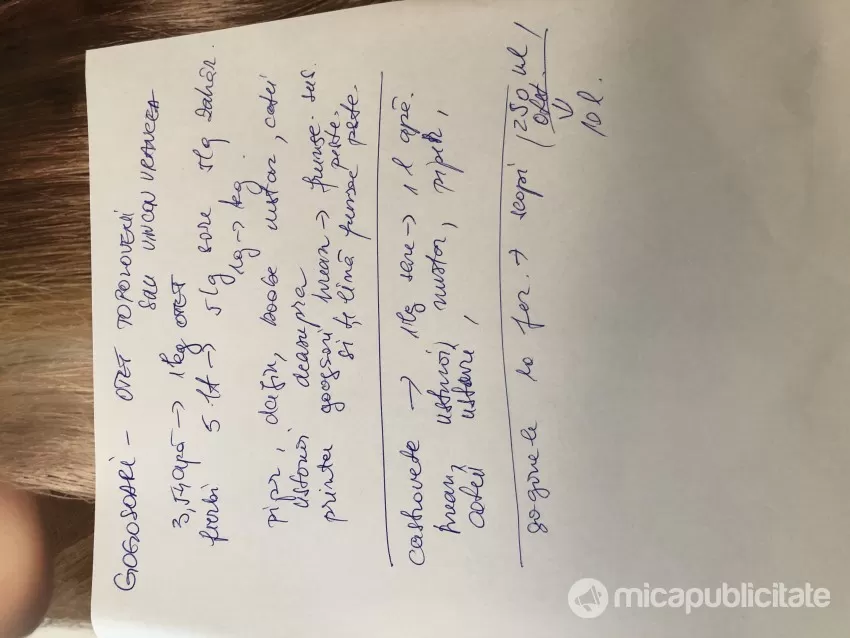 GOGOSOARI - OTET TOPOLOVENI
SAU VINCON VRANCEA
3,5 l apă → 1 kg OTET
fierbi 5 lt → 5 lg sare 5 lg zahăr.
1 lg → 1 kg
Piper, dafin, boabe mustar, catei
usturoi deasupra
printre gogosari hrean → frunze sus.
si țelină frunze peste.
peste.
castravete → 1 lg sare → 1 l apă.
hrean, usturoi, mustar, piper,
catei usturoi,
gogonele la fel. → scapi (250 ml
otet. !
10 l.
micapublicitate